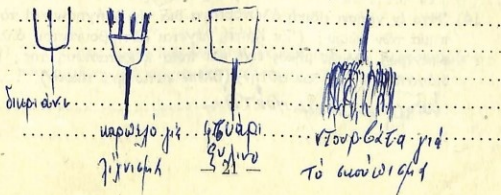 δικριάνι
καρπολό γιά
λίχνισμα
φτυάρι
ξύλινο
- 21 -
ντουρβάτα γιά
τό σκούπισμα